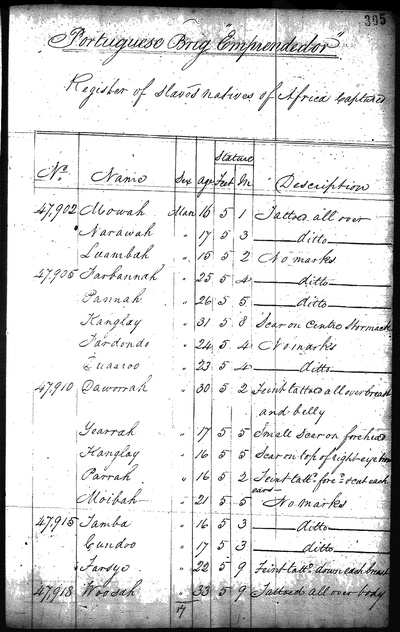 395
Portuguese Brig "Emprendedor"
Register of Slaves natives of Africa Captured
Stature
No. Name Sex Age Feet In. Description
47,902 Mowah Man 16 5 1 Tattood all over
Narawah " 17 5 3 ditto
Luambah " 15 5 2 No marks
47,905 Farbannah " 25 5 4 ditto
Pannah " 26 5 5 ditto
Kanglay " 31 5 8 Scar on Centre Stormach
Fardondo " 24 5 4 No marks
" 23 5 4 ditto
47,910 Daworrah " 30 5 2 Feint tattood all over breast
and belly
Yearrah " 17 5 5 Small Scar on forehead
Kanglay " 16 5 5 Scar on top of right eye brow
Parrah " 16 5 2 Feint tatt.d fore.d & cut each
ears
Moibah " 21 5 5 No marks
47,915 Tamba " 16 5 3 ditto
Cundoo " 17 5 3 ditto
Farsye " 22 5 9 Feint tatt.d down each breast
47,918 Woosah " 33 5 9 Tattooed all over body
17